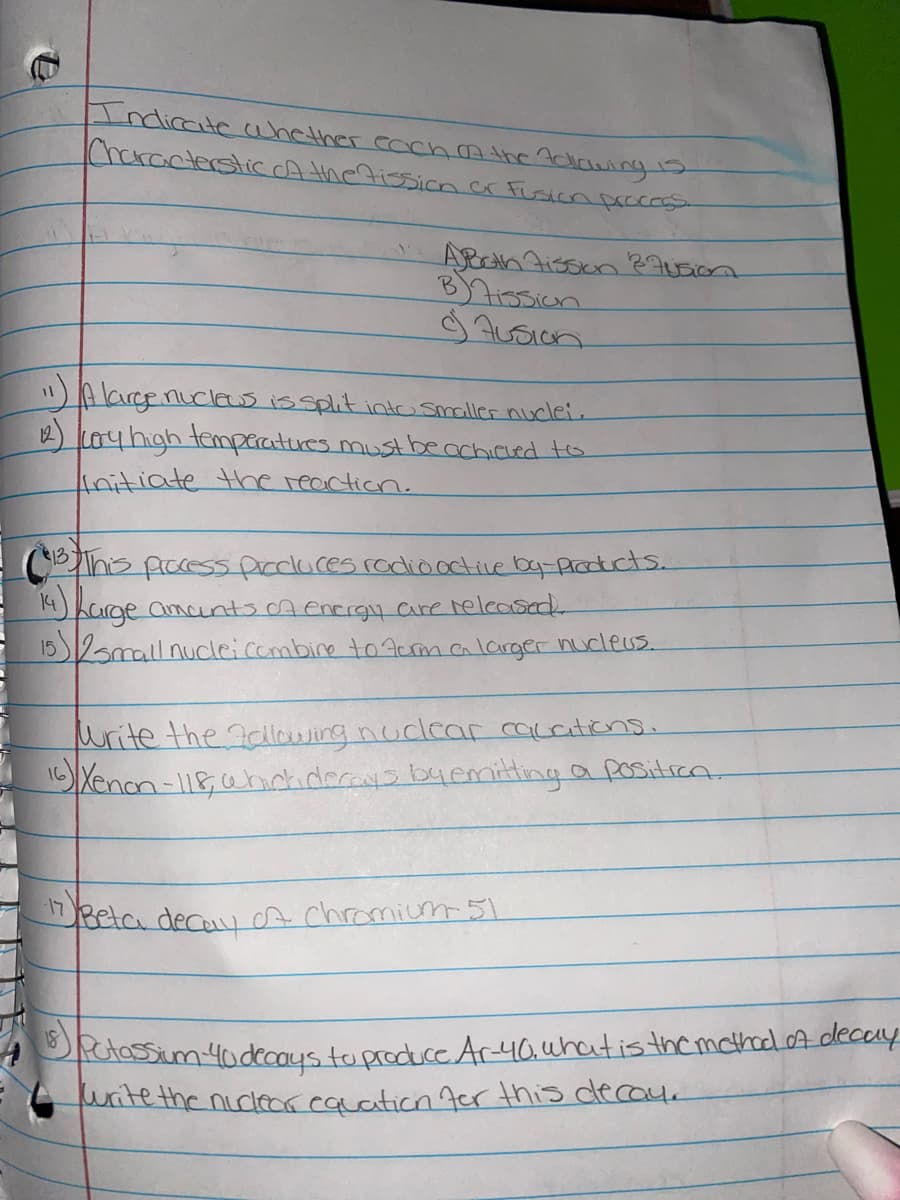 Indicate whether each of the following is
Characterstic of the fission or Fusion process.
A) Both fission & fusion
B) fission
C) fusion
11) A large nucleus is split into smaller nuclei.
12) Very high temperatures must be achieved to
initiate the reaction.
13) This process produces radioactive by-products.
14) Large amounts of energy are released.
15) 2 small nuclei combine to form a larger nucleus.
Write the following nuclear equations.
16) Xenon-118, which decays by emitting a positron.
17) Beta decay of chromium-51
18) Potassium-40 decays to produce Ar-40. what is the method of decay
write the nuclear equation for this decay.